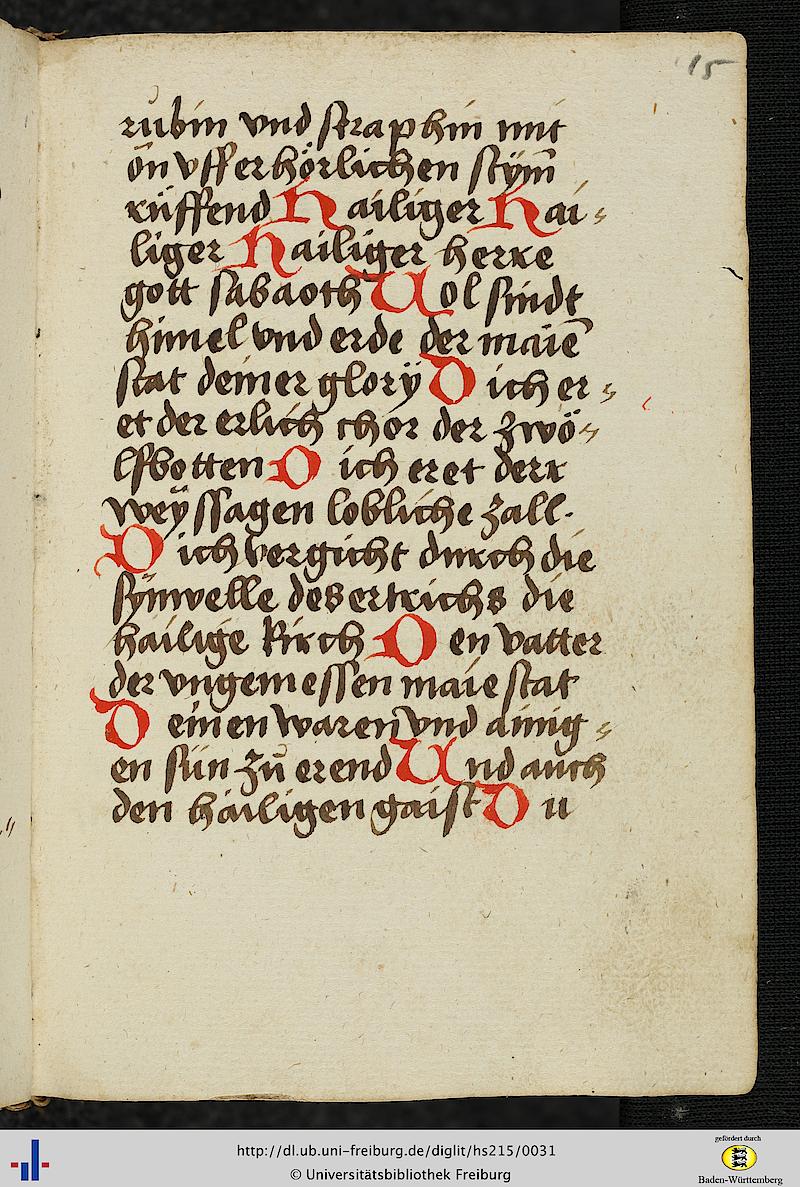 15
rubin vnd seraphin mit
ön vfferhörlichen stÿm̄
rüffend Hailiger Hai-
liger Hailiger herre
gott sabaoth Uol sindt
himel vnd erde der maiē
stat deiner glorÿ Dich er-
et der erlich chor der zwö-
lfbotten Dich eret derr
weÿssagen lobliche zall.
Dich vergicht durch die
sÿnwelle des ertrichs die
hailige kirch Den vatter
der vngemessen maiestat
Deinen waren vnd ainig-
en sün zü erend Und auch
den hailigen gaist Du
http://dl.ub.uni-freiburg.de/diglit/hs215/0031
© Universitätsbibliothek Freiburg
gefördert durch
Baden-Württemberg